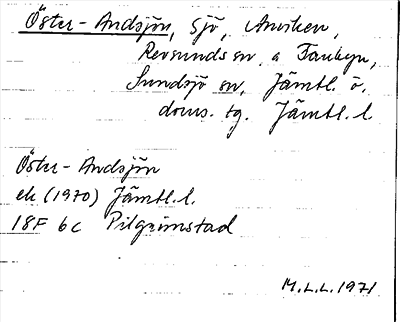 Öster-Andsjön, sjö, Anviken,
Revsunds sn, o Fanbyn,
Sundsjö sn, Jämtl. ö.
doms. tg. Jämtl. l.
Öster-Andsjön
ek (1970) Jämtl. l.
18F 6c Pilgrimstad
M.L.L. 1971